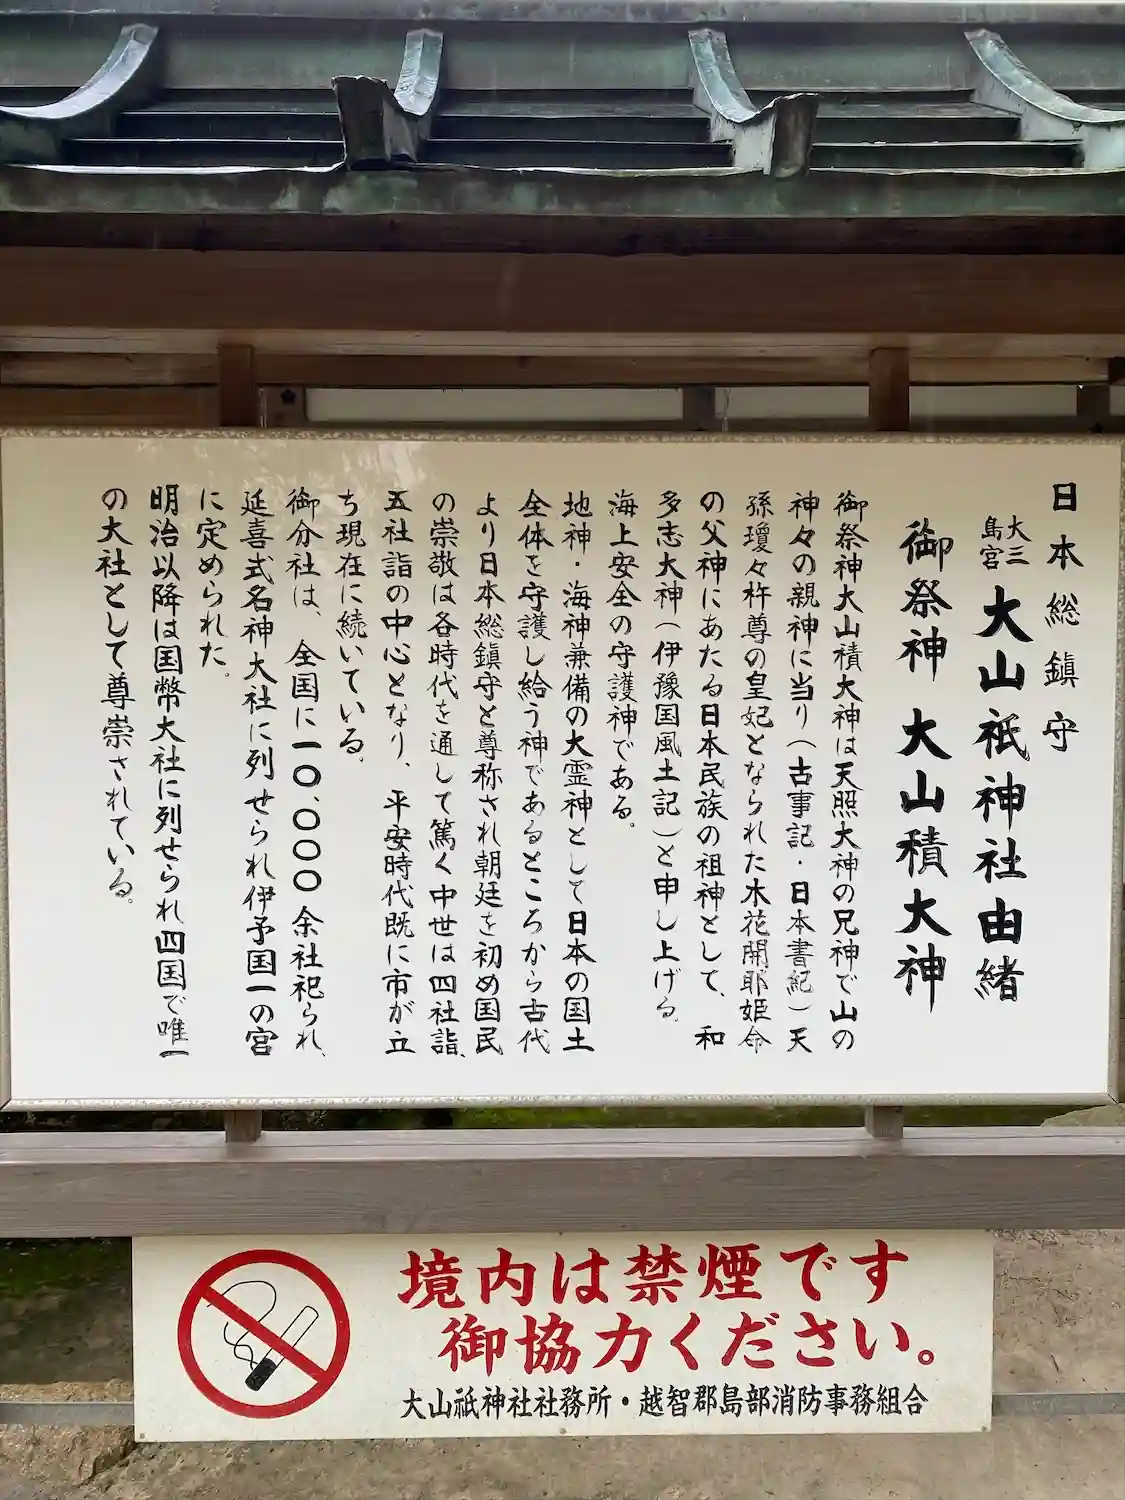 日本総鎮守
大三島宮 大山祇神社由緒
御祭神 大山積大神
御祭神大山積大神は天照大神の兄神で山の
神々の親神に当り（古事記・日本書紀）天
孫瓊々杵尊の皇妃となられた木花開耶姫命
の父神にあたる日本民族の祖神として、和
多志大神（伊豫国風土記）と申し上げる。
海上安全の守護神である。
地神・海神兼備の大霊神として日本の国土
全体を守護し給う神であるところから古代
より日本総鎮守と尊称され朝廷を初め国民
の崇敬は各時代を通して篤く中世は四社詣、
五社詣の中心となり、平安時代既に市が立
ち現在に続いている。
御分社は、全国に一〇、〇〇〇余社祀られ、
延喜式名神大社に列せられ伊予国一の宮
に定められた。
明治以降は国幣大社に列せられ四国で唯一
の大社として尊崇されている。
境内は禁煙です
御協力ください。
大山祇神社社務所・越智郡島部消防事務組合